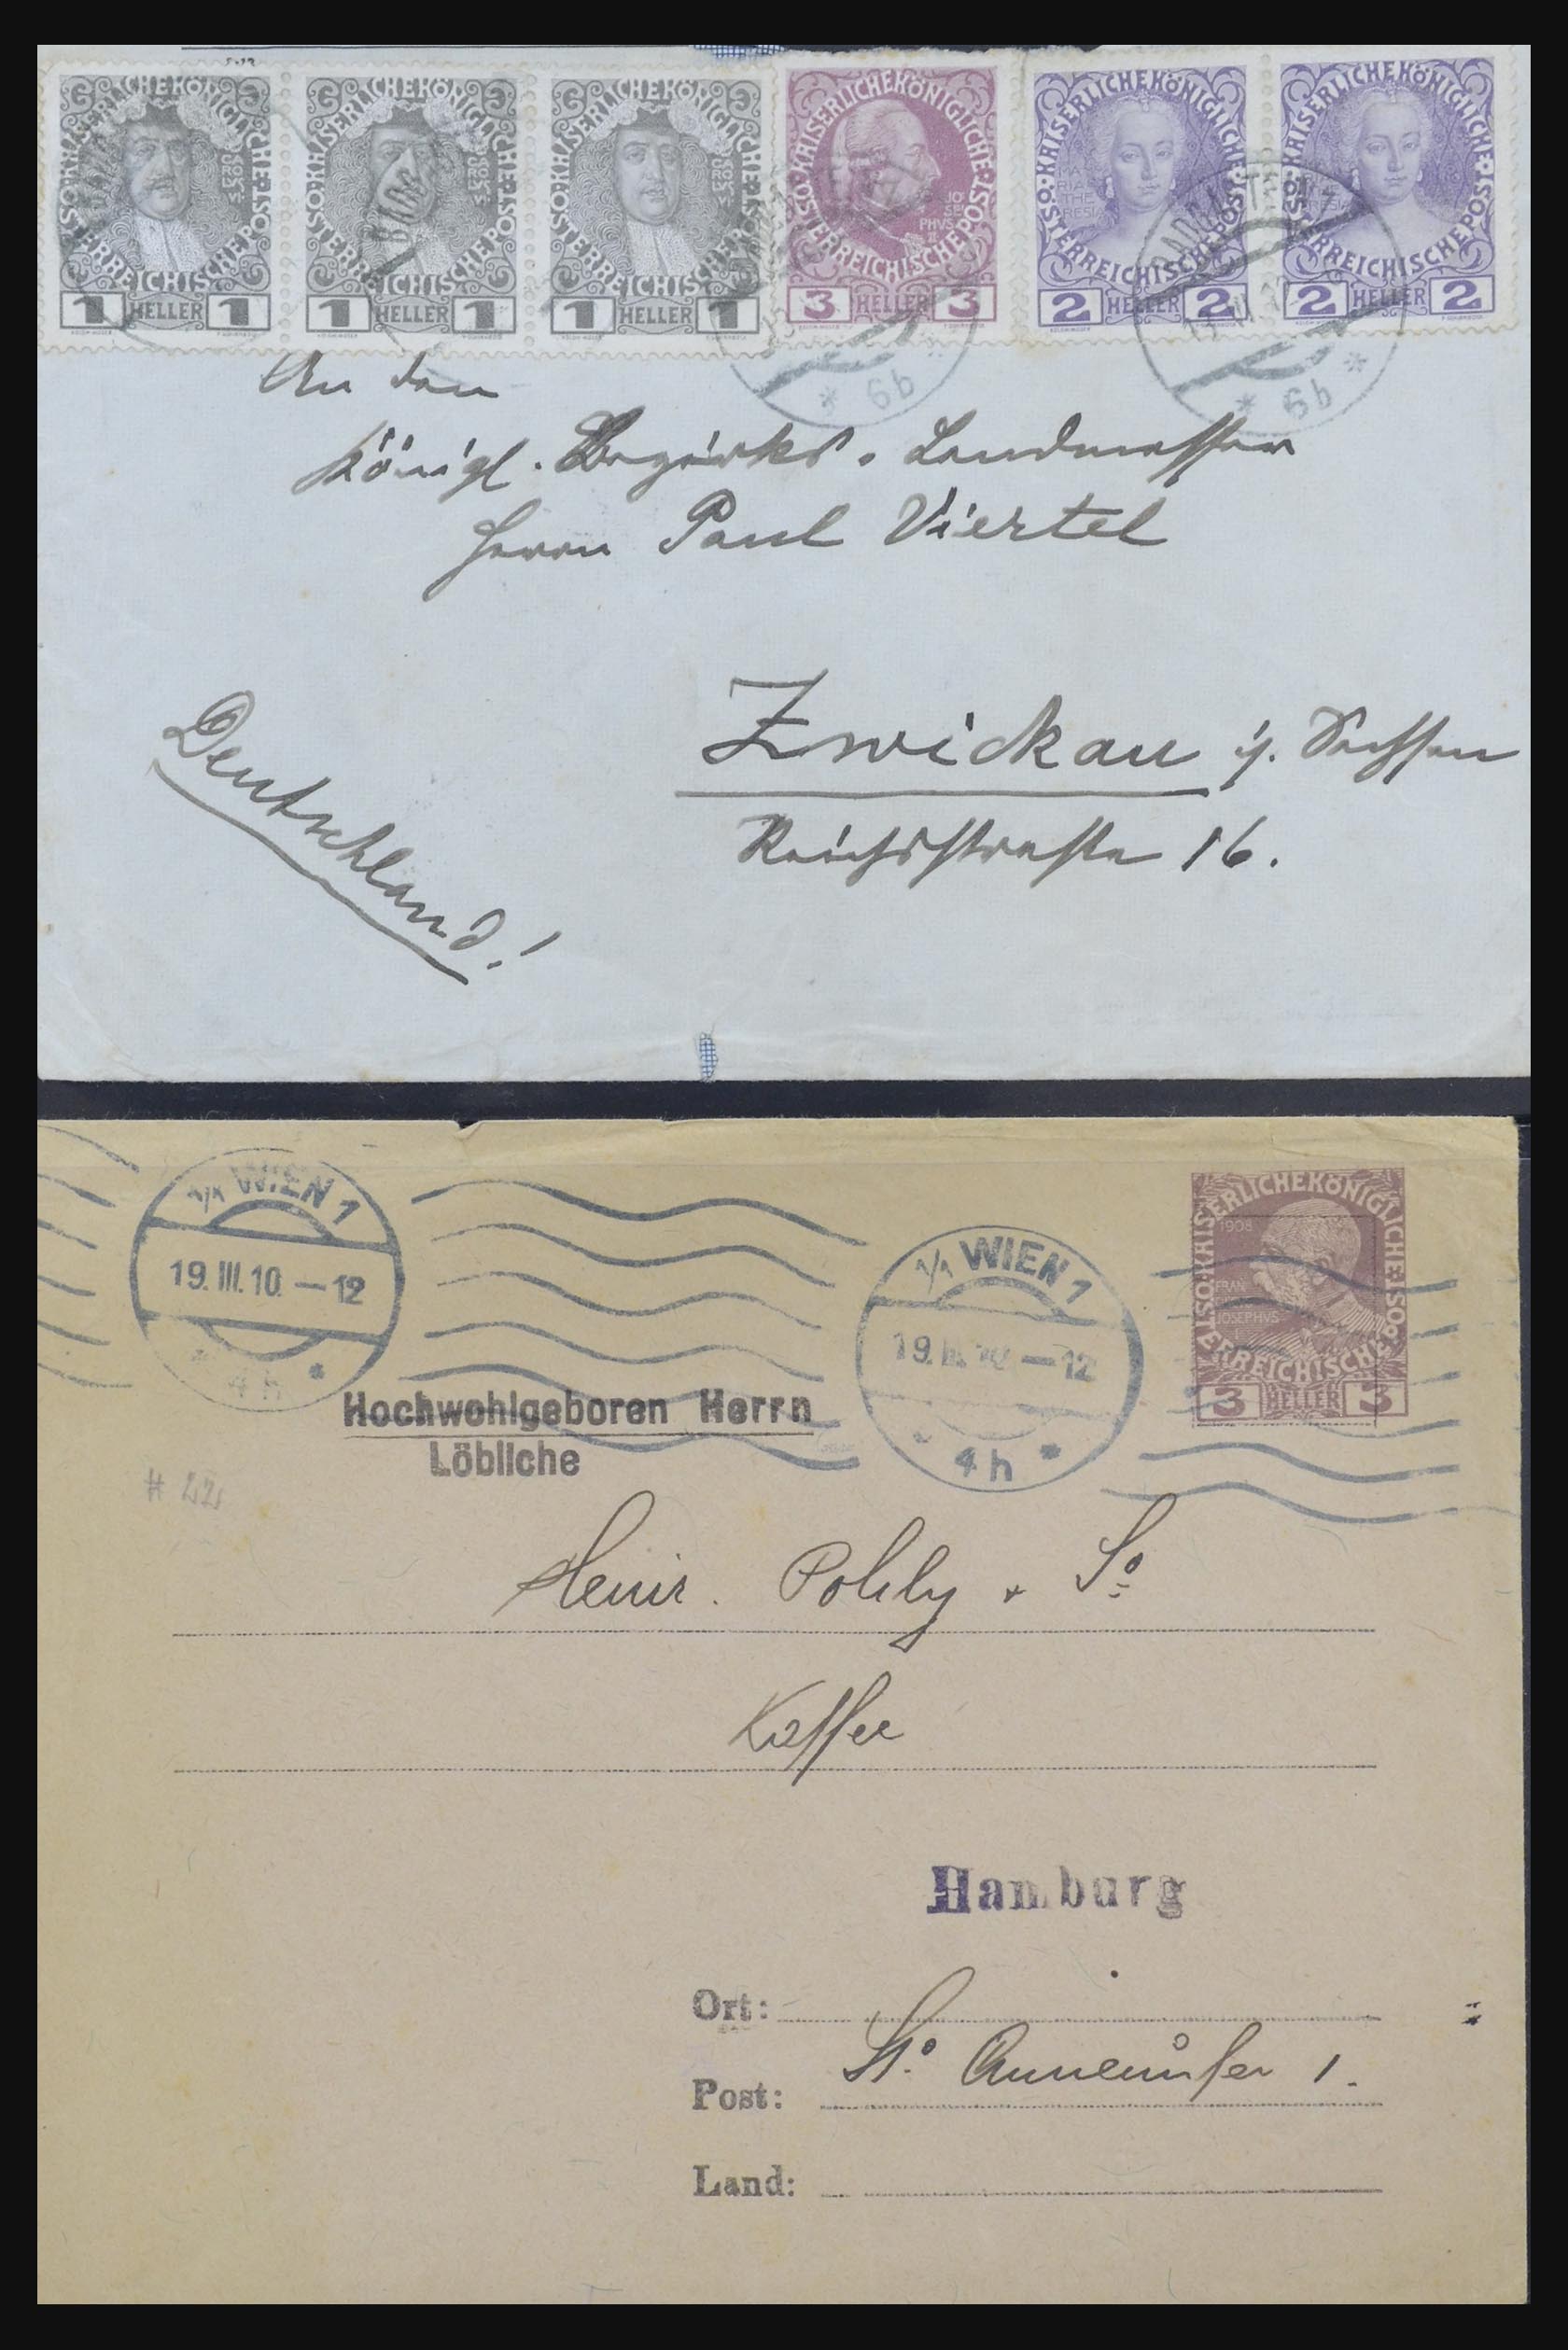 KAISERLICHEKÖNIGLICHE·ÖSTERREICHISCHEPOST
CAROLVS
1 HELLER 1
KAISERLICHEKÖNIGLICHE·ÖSTERREICHISCHEPOST
CAROLVS
1 HELLER 1
KAISERLICHEKÖNIGLICHE·ÖSTERREICHISCHEPOST
CAROLVS
1 HELLER 1
KAISERLICHEKÖNIGLICHE·ÖSTERREICHISCHEPOST
JOSEPHVS
3 HELLER 3
KAISERLICHEKÖNIGLICHE·ÖSTERREICHISCHEPOST
MARIA THERESIA
2 HELLER 2
KAISERLICHEKÖNIGLICHE·ÖSTERREICHISCHEPOST
2 HELLER 2
* 6b *
* 6b *
An den
Königl. Bezirks-Landmesser
Herrn Paul Viertel
Zwickau i/. Sachsen
Reichsstraße 16.
Deutschland!
1/1 WIEN 1
19.III.10.—12
* 4h *
1/1 WIEN 1
19. —12
* 4h *
KAISERLICHEKÖNIGLICHE·ÖSTERREICHISCHEPOST
1908
FRANC JOSEPHVS I
3 HELLER 3
Hochwohlgeboren Herrn
Löbliche
# 22
Heinr. Pohly
Kaffee
Hamburg
Ort:
Post: St. Annenufer 1.
Land: